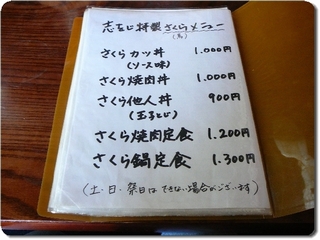 志をじ特製 さくらメニュー
(馬)
さくらカツ丼 1.000円
(ソース味)
さくら焼肉丼 1.000円
さくら他人丼 900円
(玉子とじ)
さくら焼肉定食 1.200円
さくら鍋定食 1.300円
(土・日・祭日はできない場合がございます)